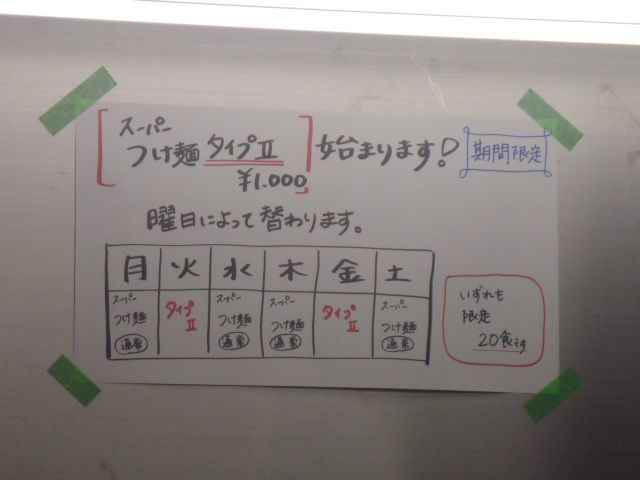 スーパー
つけ麺 タイプⅡ 始まります! 期間限定
¥1.000
曜日によって替わります。
月 火 水 木 金 土
スーパー つけ麺 通常
タイプⅡ
スーパー つけ麺 通常
スーパー つけ麺 通常
タイプⅡ
スーパー つけ麺 通常
いずれも
限定
20食です